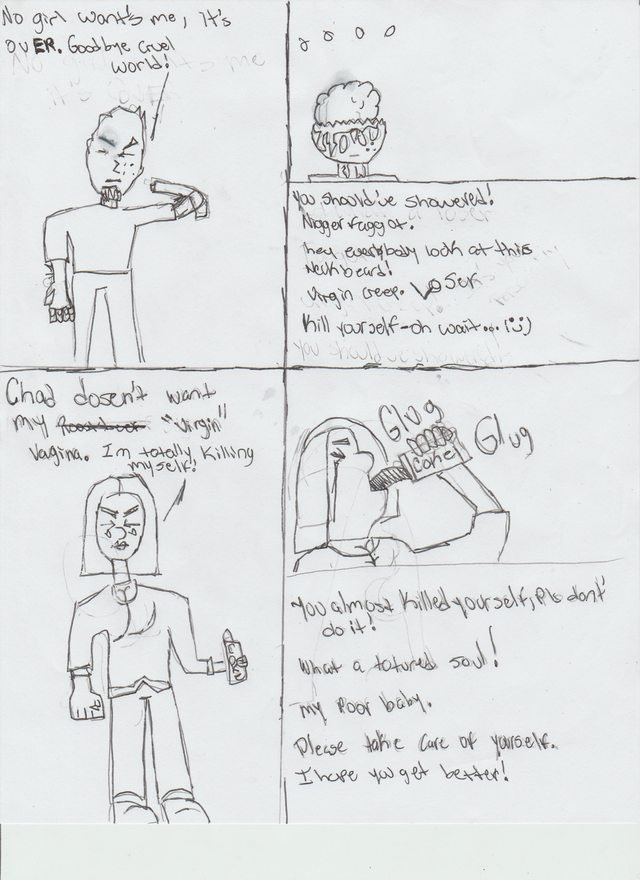 No girl want's me, it's
OVER. Goodbye cruel
world!
You should've showered!
Nigger faggot.
hey everybody look at this
Neckbeard!
Virgin creep. Loser
Kill yourself-oh wait... (:))
Chad dosen't want
my "Virgin"
Vagina. I'm totally killing
myself!
COKE
Glug
Glug
coke
You almost killed yourself, Pls dont'
do it!
What a totured soul!
my poor baby.
Please take care of yourself.
I hope you get better!